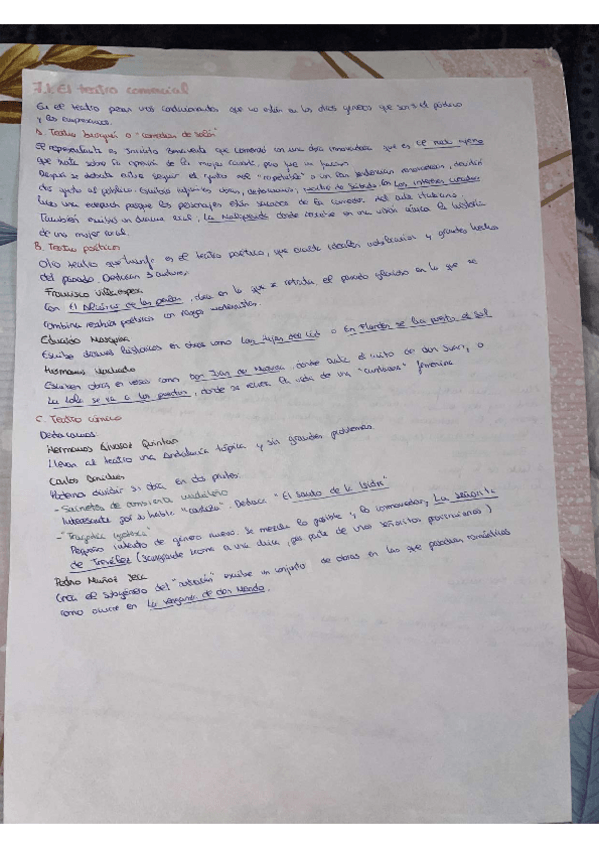 7.1. El teatro comercial
En el teatro pesan unos condicionantes que no están en los otros géneros que son: el público
y los empresarios.
A. Teatro burgués o "comedias de salón"
El representante es Jacinto Benavente que comenzó con una obra innovadora que es El nido ajeno
que trata sobre la opresión de la mujer casada, pero fue un fracaso.
Después se debate entre seguir el gusto del "respetable" o sin las tendencias renovadoras, decidió
dar gusto al público. Escribió algunas obras, destacamos; noche de Sábado en Los intereses creados
hace una excepción porque los personajes están sacados de la comedia del arte italiana.
También escribió un drama rural, La Malquerida donde la historia
de una mujer rural.
B. Teatro poético
Otro teatro que triunfa es el teatro poético, que exalte ideales nobiliarios y grandes hechos
del pasado. Destacan 3 autores:
Francisco Villaespesa
Con El Alcázar de las perlas, obra en la que se retrata el pasado glorioso en la que se
combina teatro poético con rasgos modernistas.
Eduardo Marquina
Escribe dramas históricos en obras como Las hijas del Cid o En Flandes se ha puesto el Sol
Hermanos Machado
Escriben obras en verso como Don Juan de Mañara, donde sale el mito de don Juan, o
La Lola se va a los puertos, donde se recrea la vida de una "cantaora" flamenca
C. Teatro cómico
Destacamos:
Hermanos Álvarez Quintero
Llevan al teatro una Andalucía tópica y sin grandes problemas.
Carlos Arniches
Podemos dividir su obra en dos partes:
- Sainetes de ambiente madrileño
Interesante por su habla "castiza". Destaca "El santo de la Isidra"
- "Tragedia grotesca"
Pequeño intento de género nuevo. Se mezcla lo risible y lo conmovedor, La Señorita
de Trevélez (burla a una chica, por parte de unos señoritos provincianos)
Pedro Muñoz Seca
Crea el subgénero del "astracán" escribe un conjunto de obras en las que parodian románticos
como ocurre en La venganza de don Mendo.